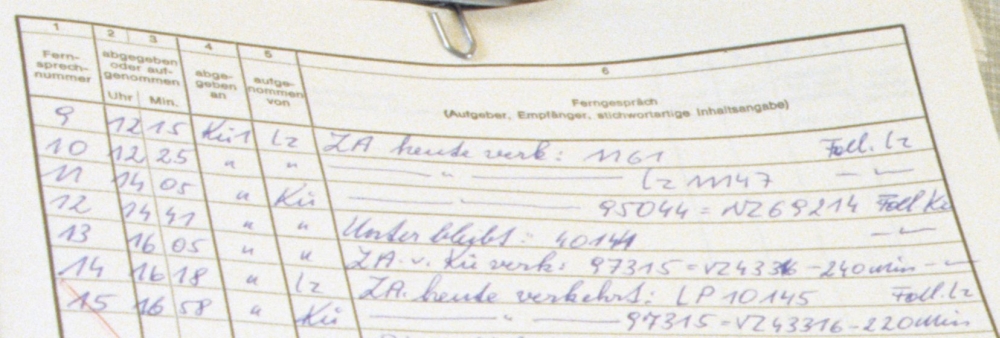 1 2 3 4 5 6
Fern-sprech-nummer abgegeben oder auf-genommen Uhr Min. abge-geben an aufge-nommen von Ferngespräch (Aufgeber, Empfänger, stichwortartige Inhaltsangabe)
9 12 15 Kü1 Lz ZA heute verk: 1161 Fdl. Lz
10 12 25 " " — " — Lz 11147 — " —
11 14 05 " Kü — " — 95044 = VZ69214 Fdl Kü
12 14 41 " " Unterbleibt: 40141 — " —
13 16 05 " " ZA. v. Kü verk: 97315 = VZ43316 - 240 min - " -
14 16 18 " Lz ZA. heute verkehrt: LP 10145 Fdl. Lz
15 16 58 " Kü — " — 97315 = VZ43316 - 220 min